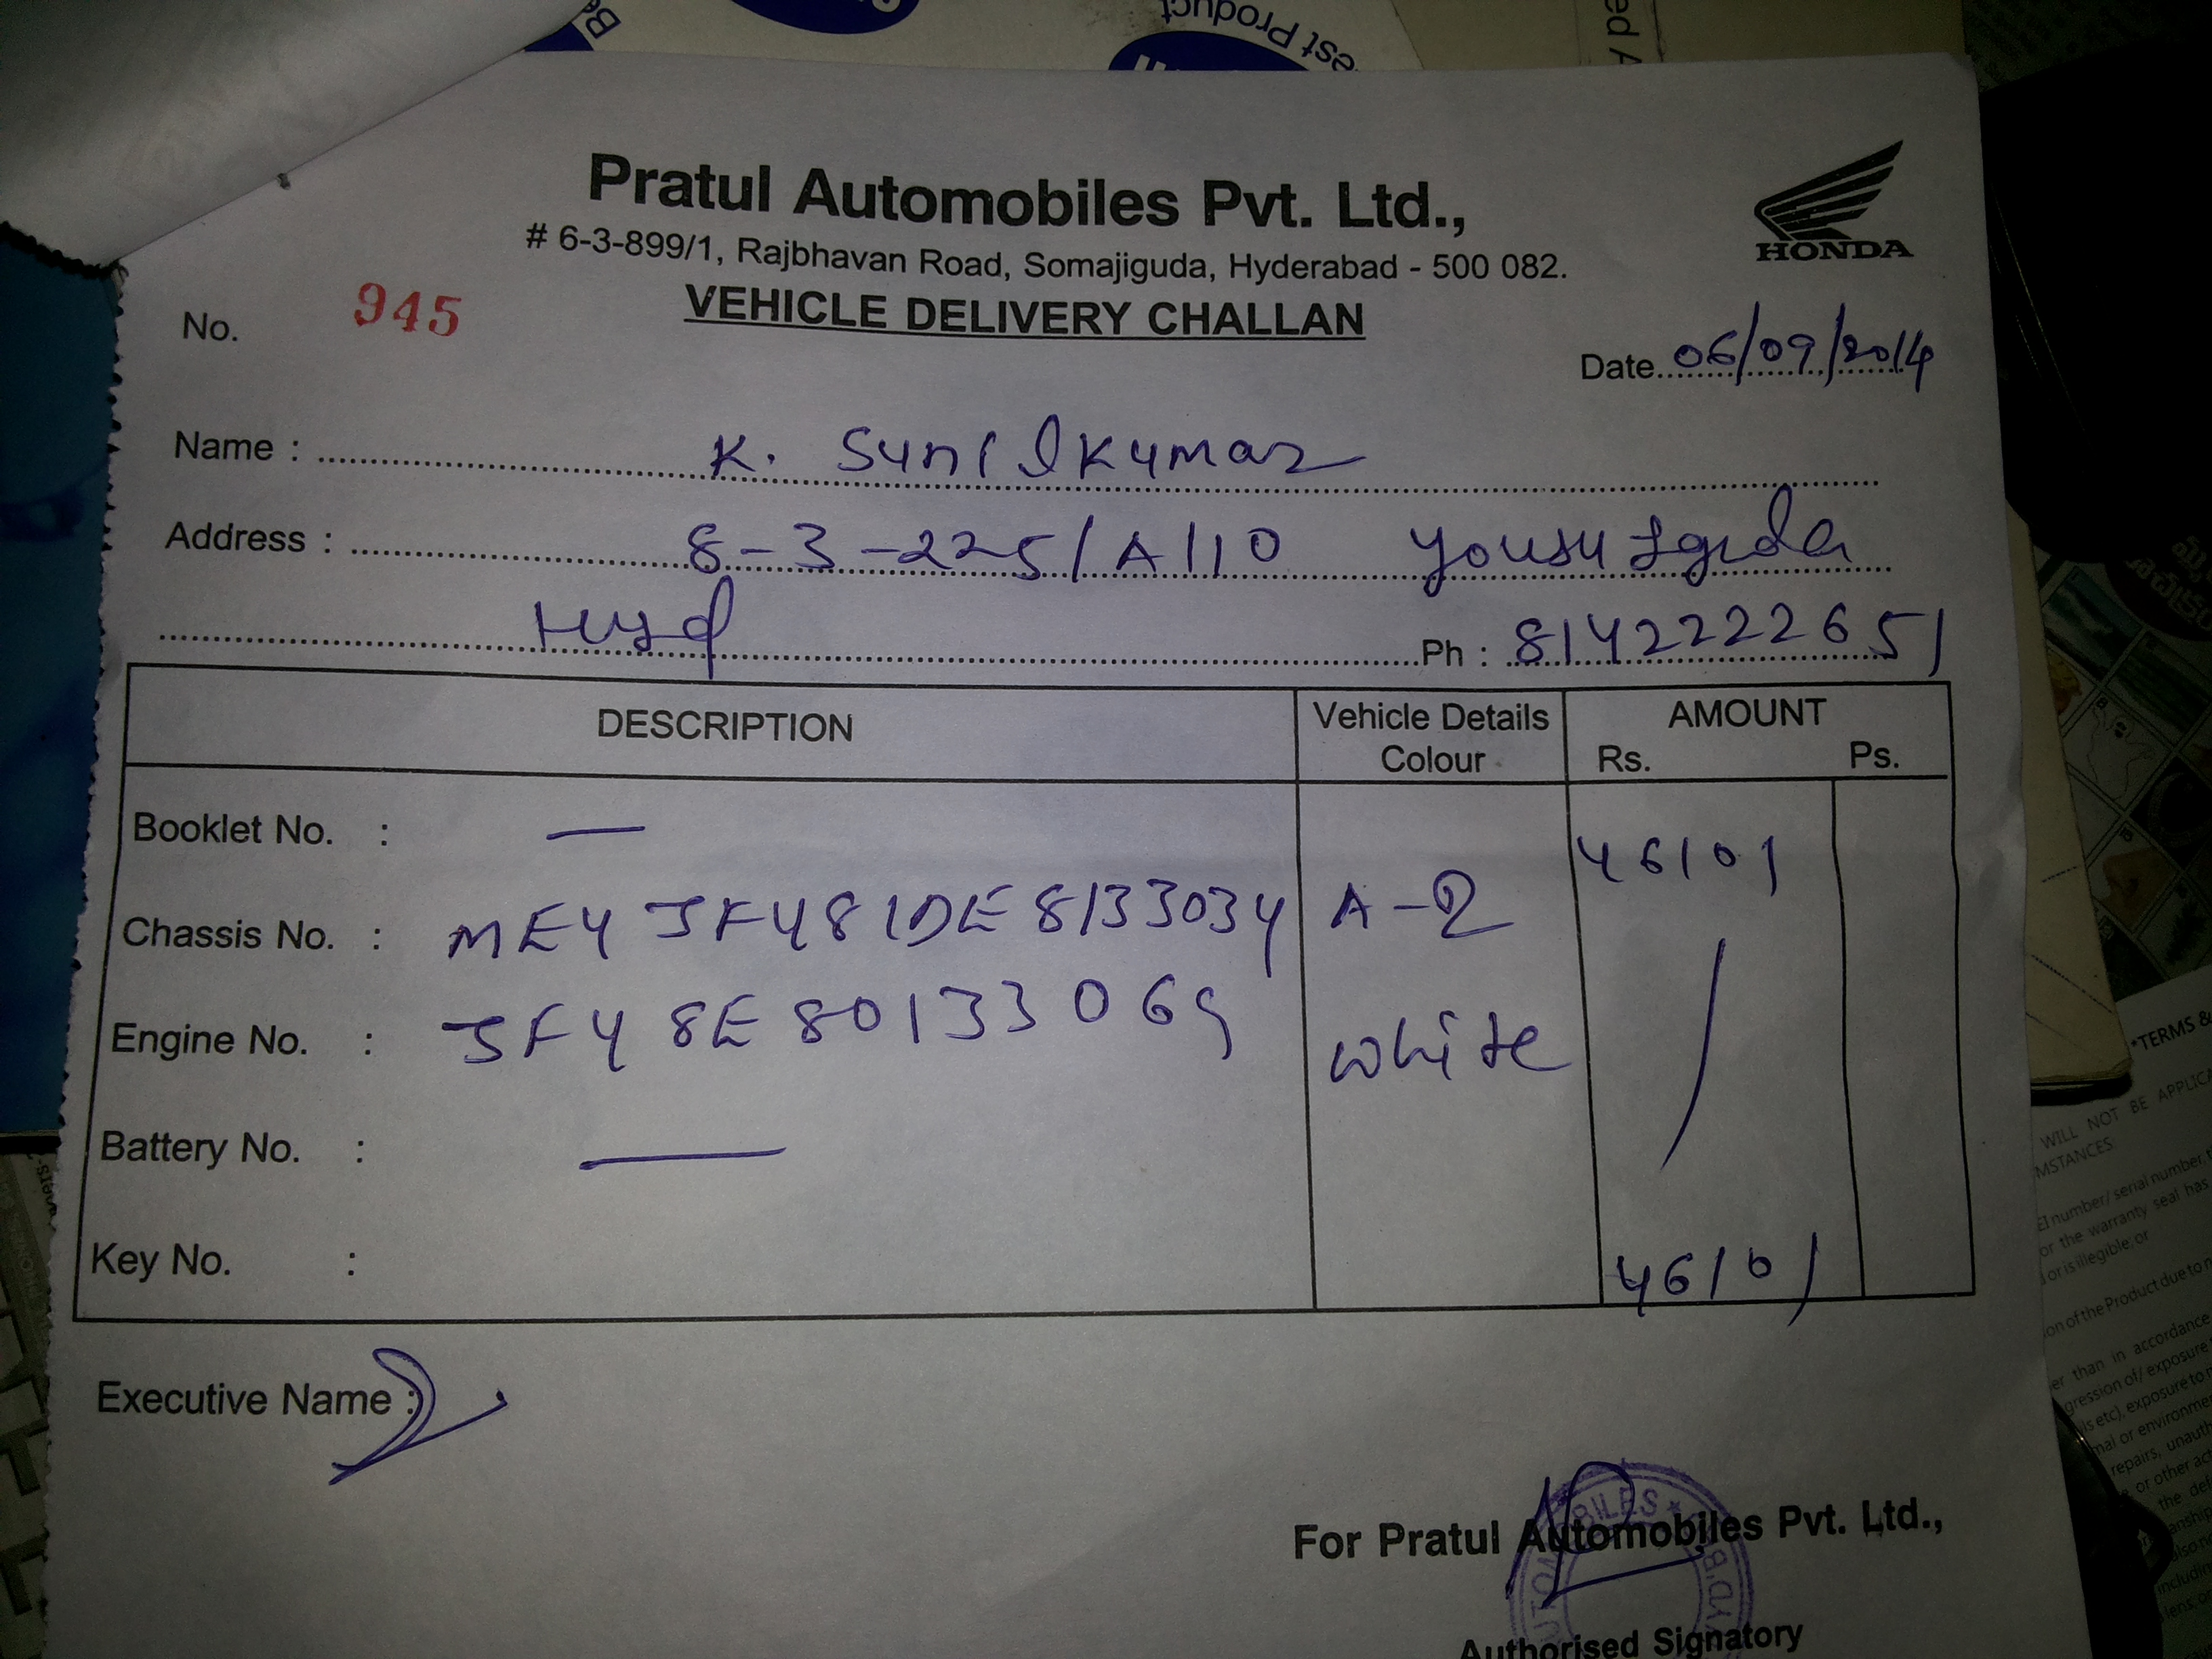 Best Product
Pratul Automobiles Pvt. Ltd.,
# 6-3-899/1, Rajbhavan Road, Somajiguda, Hyderabad - 500 082.
HONDA
No. 945
VEHICLE DELIVERY CHALLAN
Date 06/09/2014
Name : K. Sunilkumar
Address : 8-3-225/A/10 Yousufguda
Hyd Ph : 8142222651
DESCRIPTION Vehicle Details Colour AMOUNT Rs. Ps.
Booklet No. : — 46101
Chassis No. : ME4JF481DE8133034 A-2
Engine No. : JF48E80133069 White
Battery No. : —
Key No. : 46101
Executive Name :
For Pratul Automobiles Pvt. Ltd.,
Authorised Signatory
*TERMS &
WILL NOT BE APPLICA
MSTANCES:
number/ serial number,
or the warranty seal has
or is illegible; or
on of the Product due to
er than in accordance
gression of/ exposure
ls etc), exposure to
mal or environme
repairs, unauth
or other ac
the def